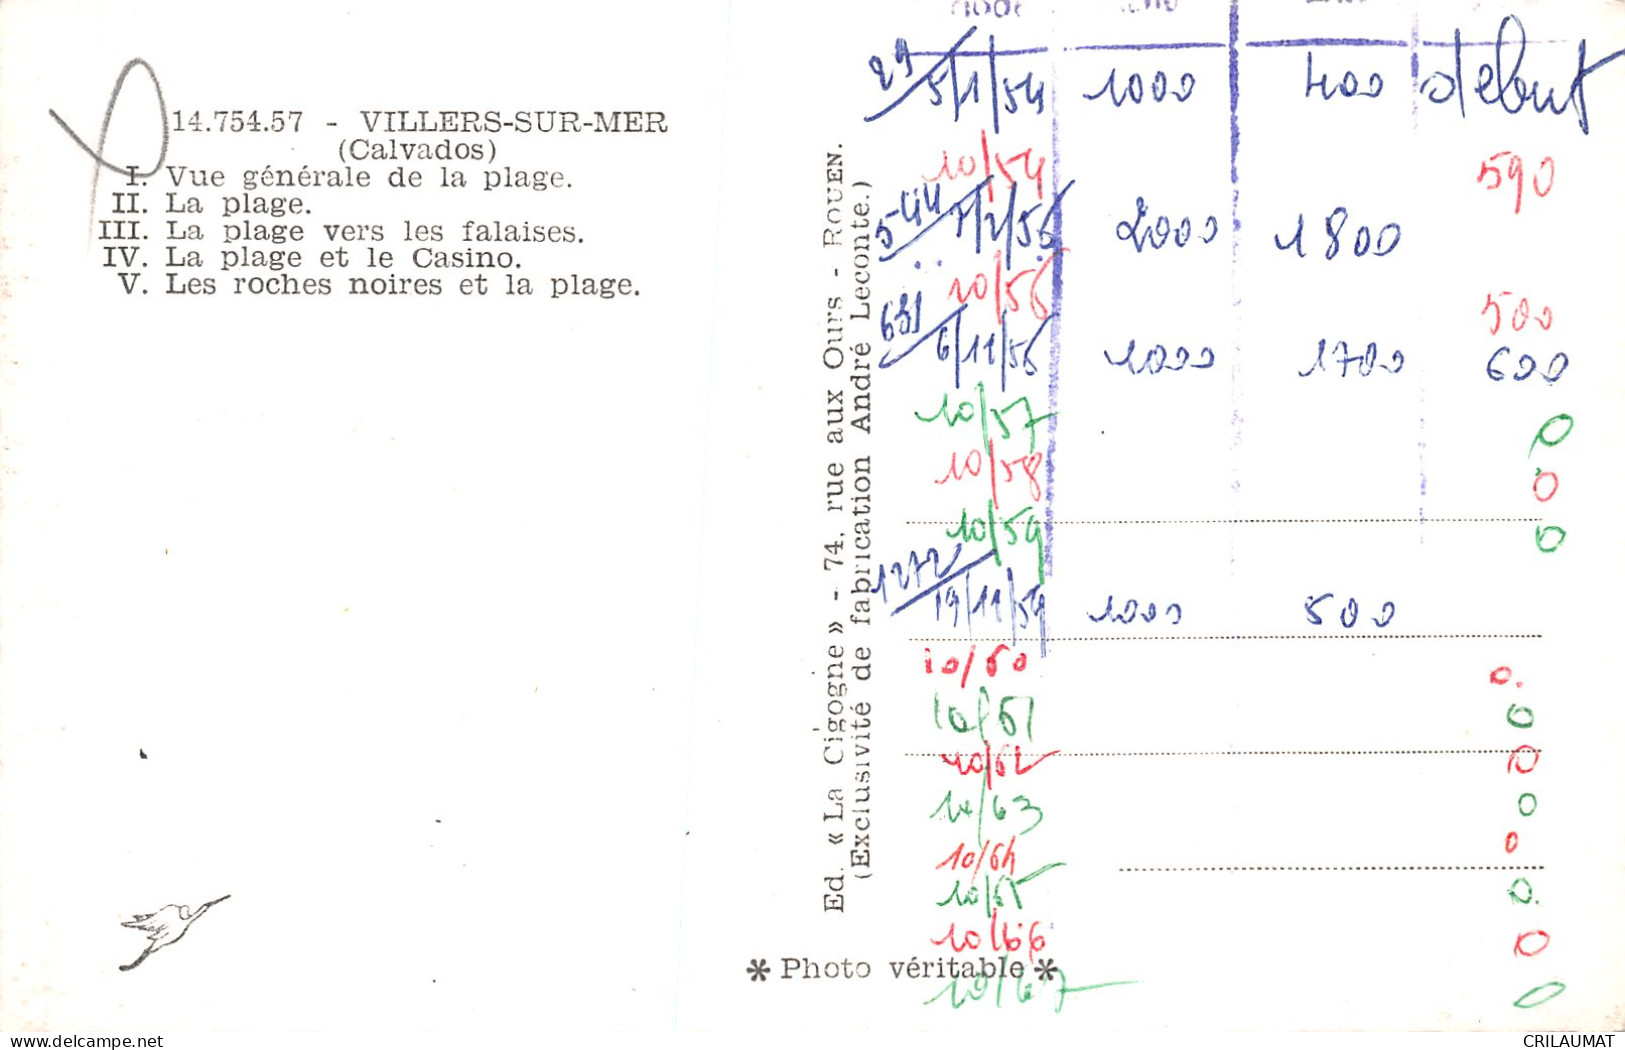 14.754.57 - VILLERS-SUR-MER
(Calvados)
I. Vue générale de la plage.
II. La plage.
III. La plage vers les falaises.
IV. La plage et le Casino.
V. Les roches noires et la plage.
Ed. « La Cigogne » - 74, rue aux Ours - ROUEN.
(Exclusivité de fabrication André Leconte.)
* Photo véritable *
29 5/1/54 1000 400 début
10/54 590
544 7/2/56 2000 1800
10/56 500
631 6/11/56 1000 1700 600
10/57 0
10/58 0
10/59 0
1272 19/11/59 1000 500
10/60 0.
10/61 0
10/62 0
10/63 0
10/64 0
10/65 0.
10/66 0
10/67 0
delcampe.net
CRILAUMAT